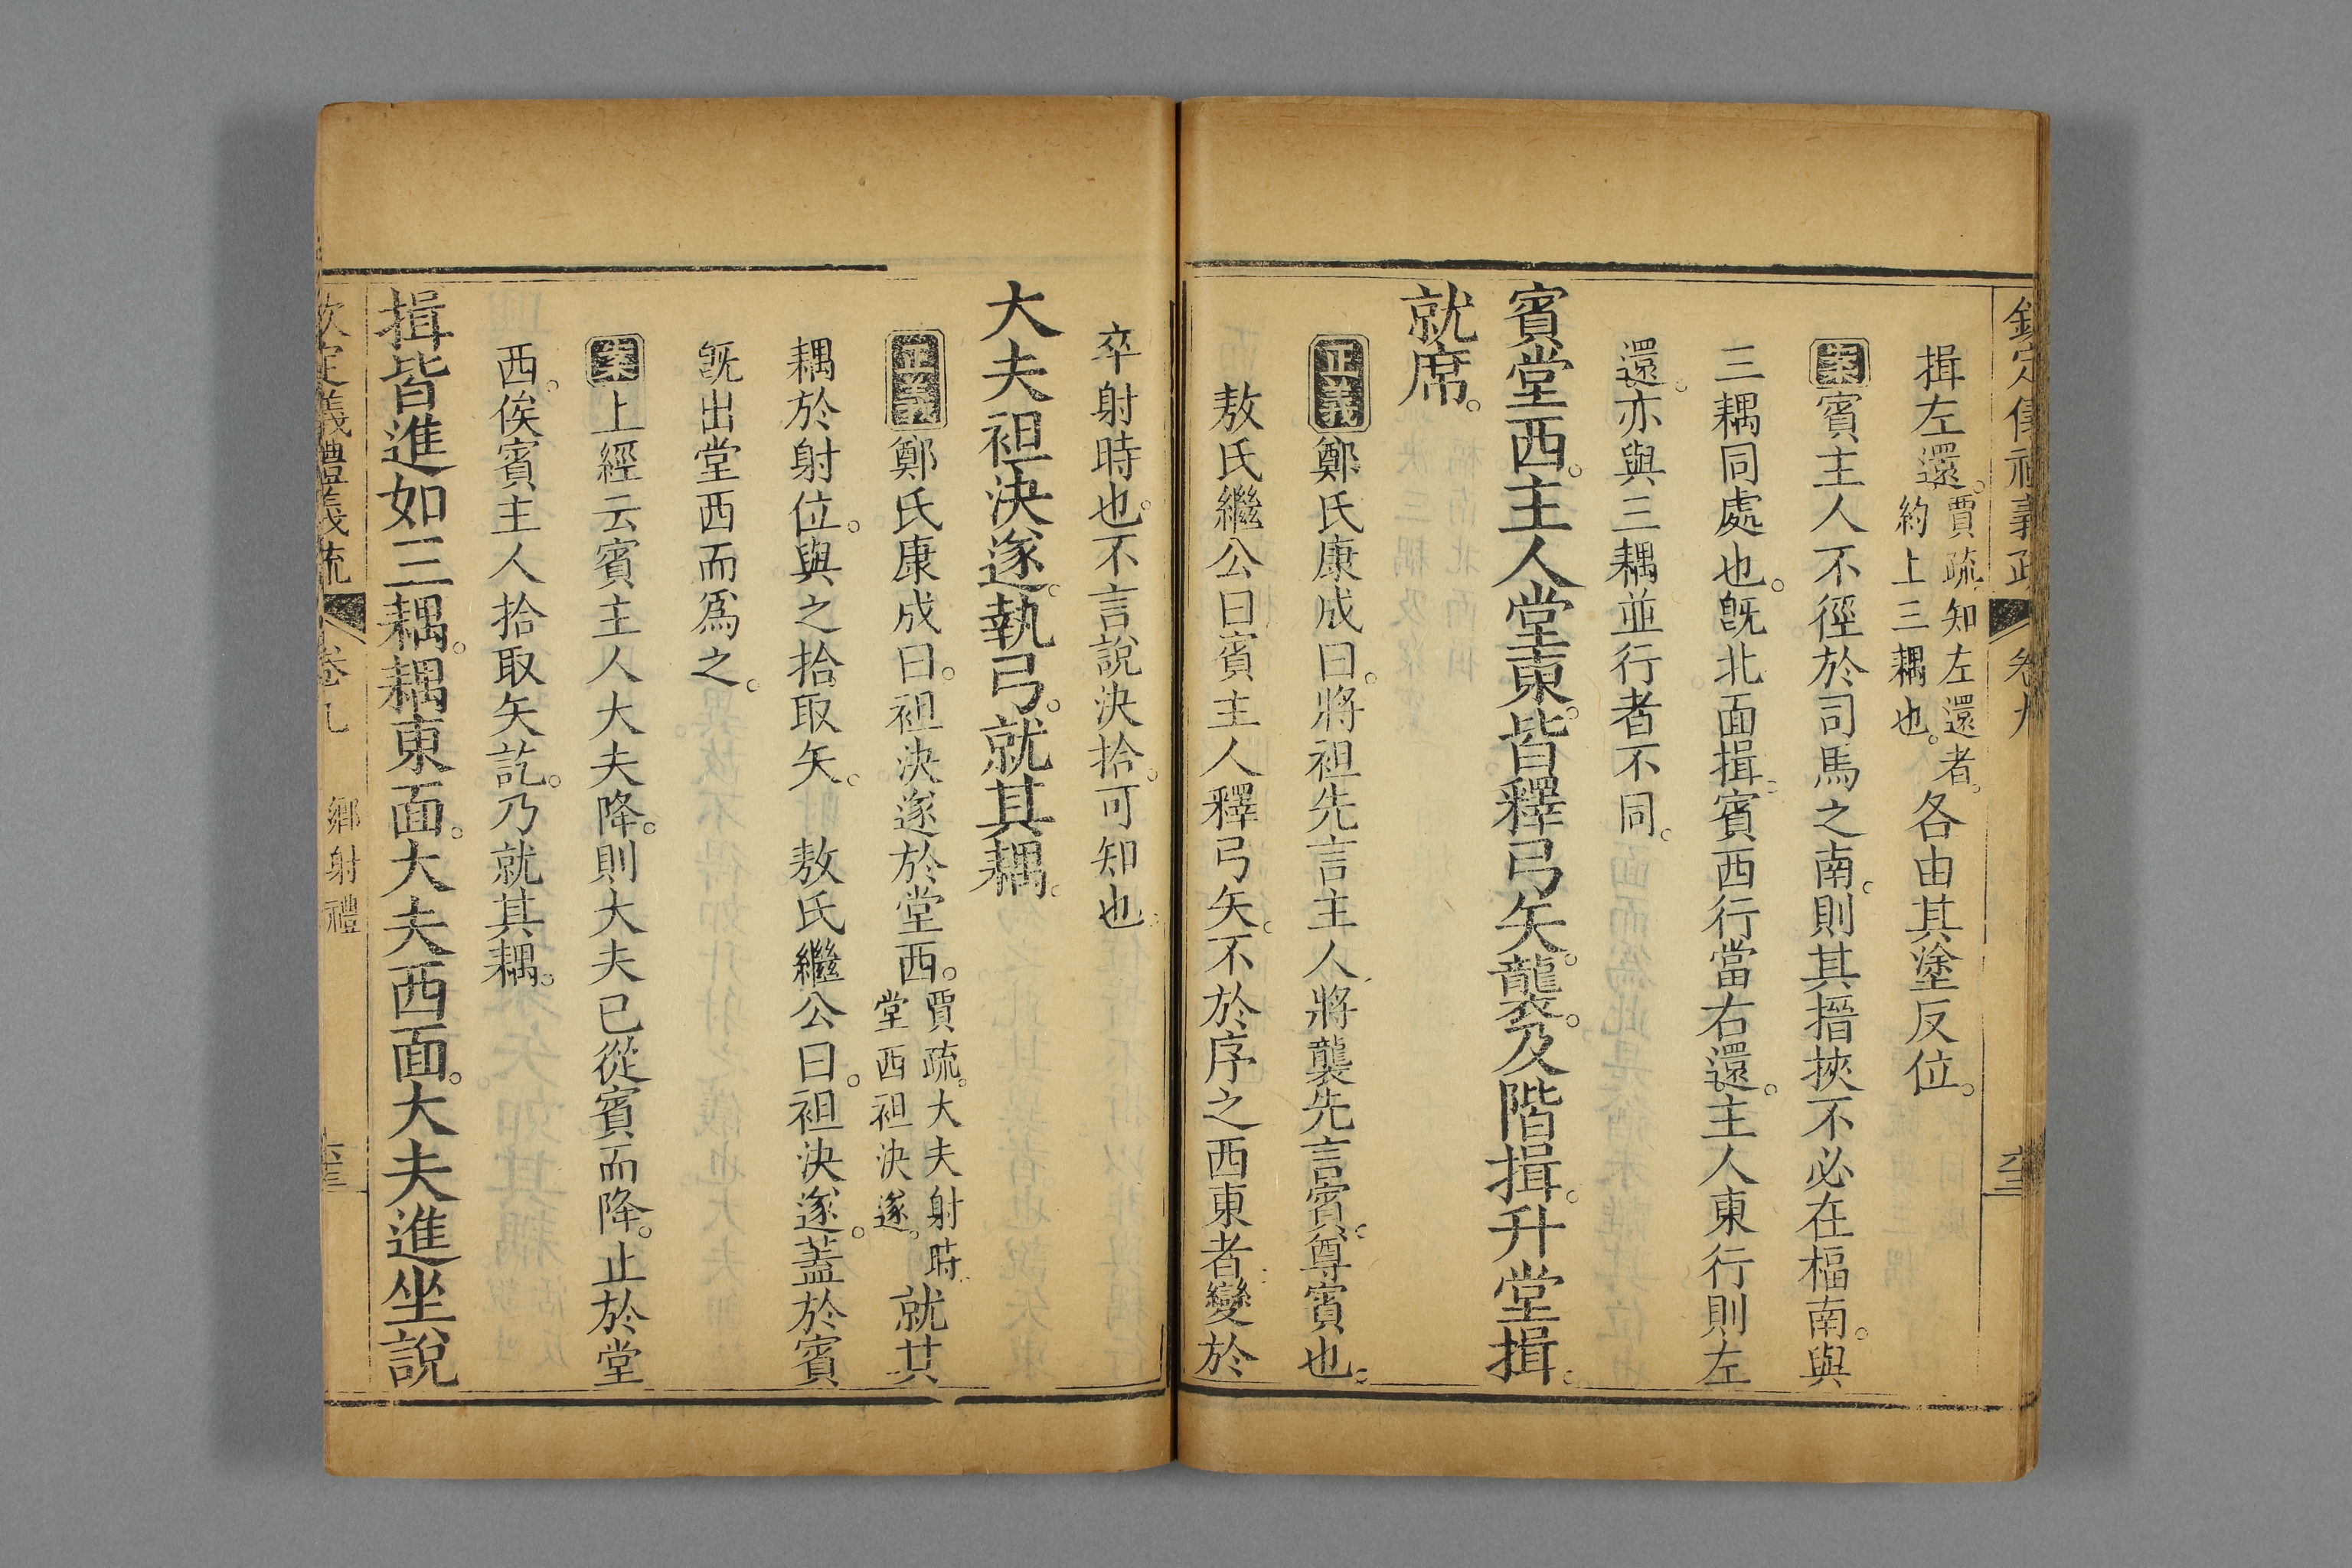 揖左還。賈疏知左還者。約上三耦也。各由其塗反位。
案賓主人不徑於司馬之南。則其搢挾不必在楅南。與
三耦同處也。旣北面揖。賓西行當右還。主人東行則左
還。亦與三耦並行者不同。
賓堂西。主人堂東。皆釋弓矢。襲。及階揖。升堂揖。
就席。
正義鄭氏康成曰。將袒先言主人。將襲先言賓。尊賓也。
敖氏繼公曰賓主人釋弓矢。不於序之西東者變於
卒射時也。不言說決拾。可知也。
大夫袒決遂。執弓。就其耦。
正義鄭氏康成曰。袒決遂於堂西。賈疏。大夫射時。堂西袒決遂。就其
耦於射位。與之拾取矢。 敖氏繼公曰。袒決遂。蓋於賓
旣出堂西而爲之。
案上經云賓主人大夫降。則大夫已從賓而降。止於堂
西。俟賓主人拾取矢訖。乃就其耦。
揖皆進如三耦。耦東面。大夫西面。大夫進坐說
欽定義禮義疏 卷九 鄉射禮